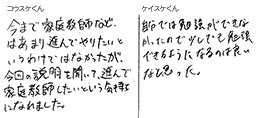 コウスケくん
今まで家庭教師など、
はあまり進んでやりたいと
いうわけではなかったが、
今回の説明を聞いて、進んで
家庭教師したいという気持ち
になれました。
ケイスケくん
では勉強ができな
かったので少しでも勉強
できるようになるのは良い
なと思った。